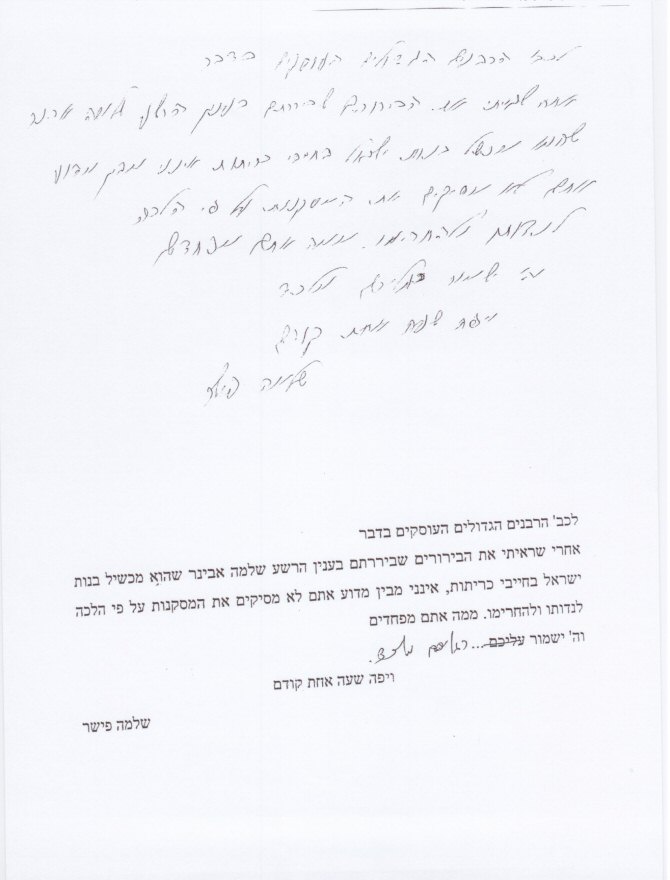 לכב' הרבנים הגדולים העוסקים בדבר
אחרי שראיתי את הבירורים שביררתם בענין הרשע שלמה אבינר
שהוא מכשיל בנות ישראל בחייבי כריתות אינני מבין מדוע
אתם לא מסיקים את המסקנות על פי הלכה
לנדותו ולהחרימו. ממה אתם מפחדים
וה' ישמור רגליכם מלכד
ויפה שעה אחת קודם
שלמה פישר
לכב' הרבנים הגדולים העוסקים בדבר
אחרי שראיתי את הבירורים שביררתם בענין הרשע שלמה אבינר שהוא מכשיל בנות
ישראל בחייבי כריתות, אינני מבין מדוע אתם לא מסיקים את המסקנות על פי הלכה
לנדותו ולהחרימו. ממה אתם מפחדים
וה' ישמור עליכם... רגליכם מלכד.
ויפה שעה אחת קודם
שלמה פישר